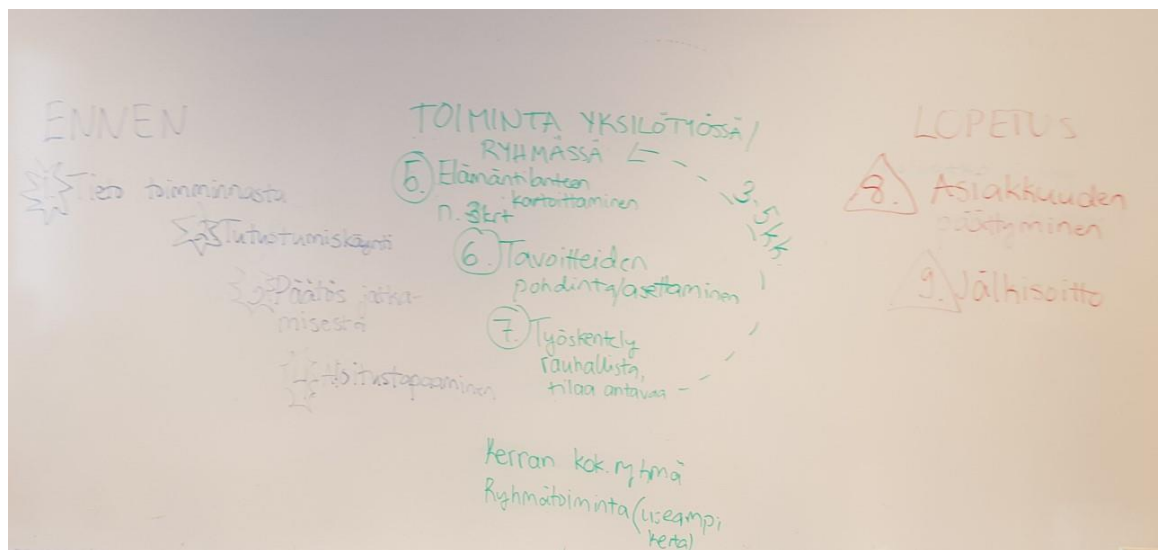 ENNEN
1. Tieto toiminnasta
2. Tutustumiskäynti
3. Päätös jatka-
misesta
4. Aloitustapaaminen
TOIMINTA YKSILÖTYÖSSÄ/
RYHMÄSSÄ
5. Elämäntilanteen
kartoittaminen
n. 3krt
6. Tavoitteiden
pohdinta/asettaminen
7. Työskentely
rauhallista,
tilaa antavaa
3.5kk.
Kerran kok. ryhmä
Ryhmätoiminta (useampi
kerta)
LOPETUS
8. Asiakkuuden
päättyminen
9. Jälkisoitto